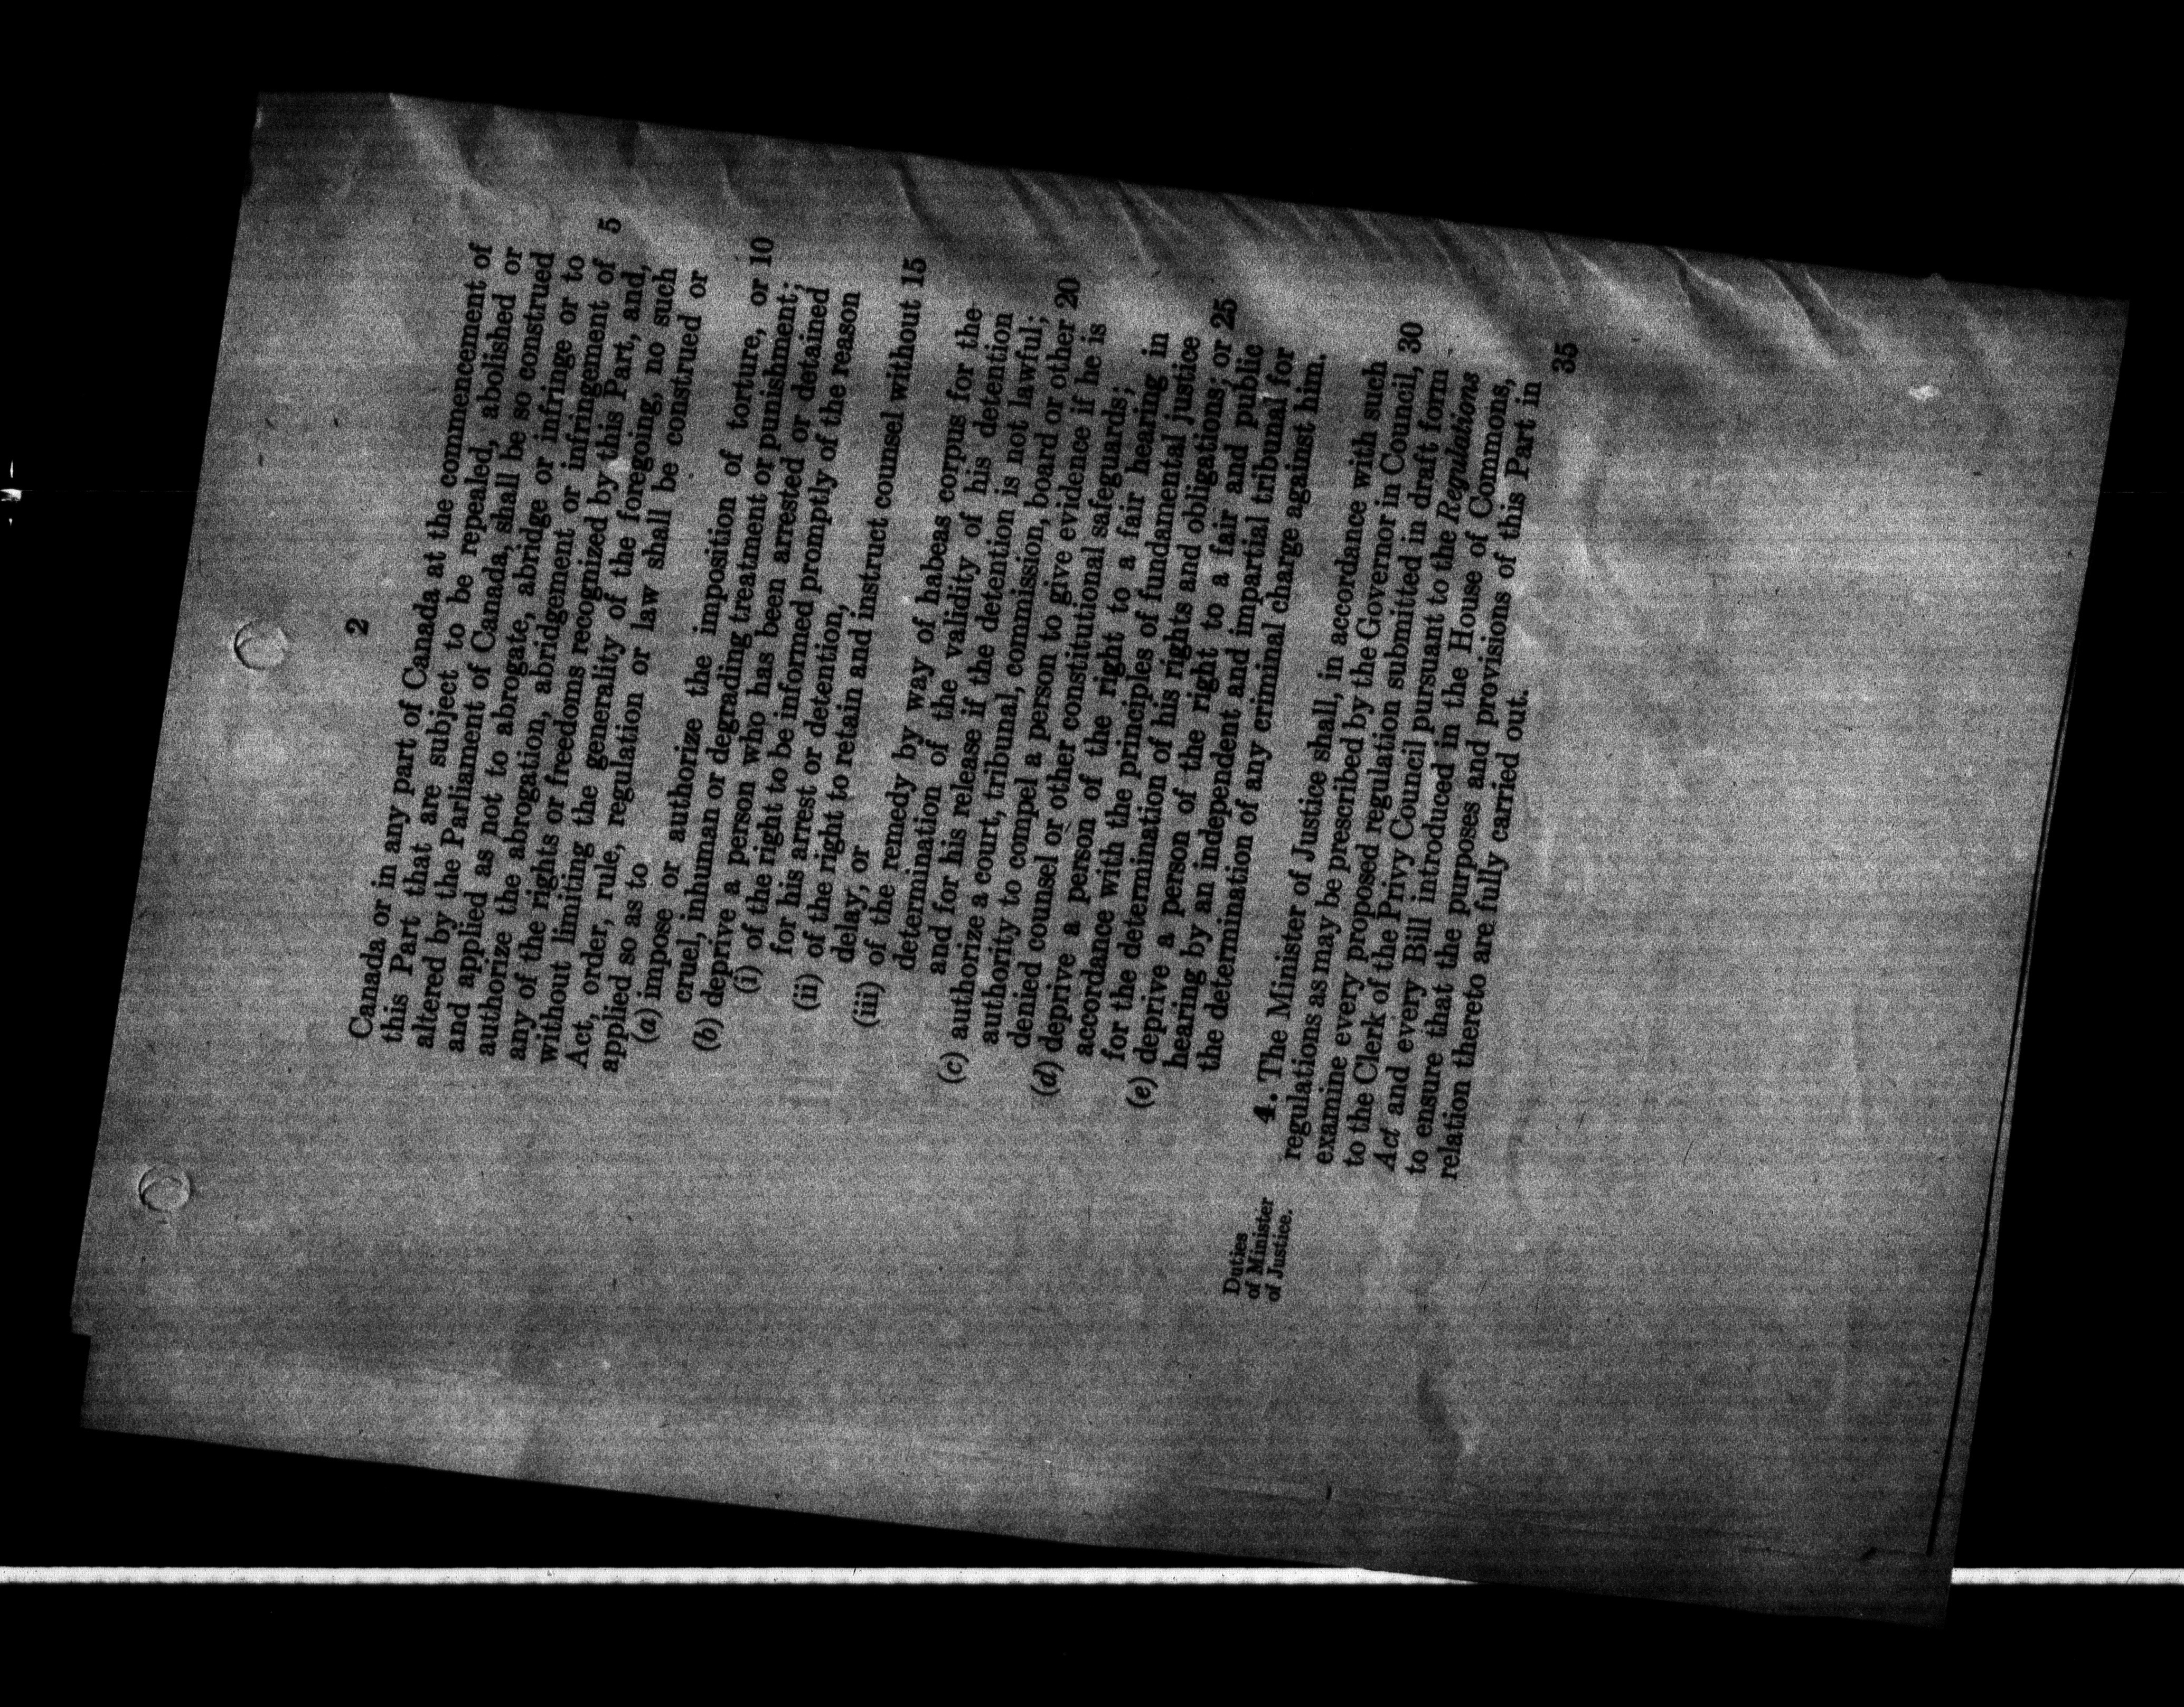 2
Canada or in any part of Canada at the commencement of
this Part that are subject to be repealed, abolished or
altered by the Parliament of Canada, shall be so construed
and applied as not to abrogate, abridge or infringe or to
authorize the abrogation, abridgement or infringement of 5
any of the rights or freedoms recognized by this Part, and,
without limiting the generality of the foregoing, no such
Act, order, rule, regulation or law shall be construed or
applied so as to
(a) impose or authorize the imposition of torture, or 10
cruel, inhuman or degrading treatment or punishment;
(b) deprive a person who has been arrested or detained
(i) of the right to be informed promptly of the reason
for his arrest or detention,
(ii) of the right to retain and instruct counsel without 15
delay, or
(iii) of the remedy by way of habeas corpus for the
determination of the validity of his detention
and for his release if the detention is not lawful;
(c) authorize a court, tribunal, commission, board or other 20
authority to compel a person to give evidence if he is
denied counsel or other constitutional safeguards;
(d) deprive a person of the right to a fair hearing in
accordance with the principles of fundamental justice
for the determination of his rights and obligations; or 25
(e) deprive a person of the right to a fair and public
hearing by an independent and impartial tribunal for
the determination of any criminal charge against him.
Duties
of Minister
of Justice.
4. The Minister of Justice shall, in accordance with such
regulations as may be prescribed by the Governor in Council, 30
examine every proposed regulation submitted in draft form
to the Clerk of the Privy Council pursuant to the Regulations
Act and every Bill introduced in the House of Commons,
to ensure that the purposes and provisions of this Part in
relation thereto are fully carried out. 35